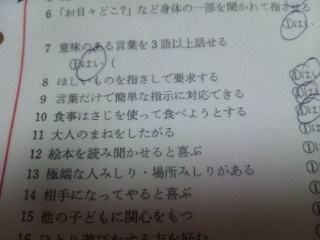 6 「お目々どこ?」など身体の一部を聞かれて指させる
①はい
7 意味のある言葉を3語以上話せる
①はい (
8 ほしいものを指さしで要求する ①はい
9 言葉だけで簡単な指示に対応できる ①はい
10 食事はさじを使って食べようとする ①は
11 大人のまねをしたがる ①
12 絵本を読み聞かせると喜ぶ ①
13 極端な人みしり・場所みしりがある ①は
14 相手になってやると喜ぶ ①は
15 他の子どもに関心をもつ ①
16 ひとり遊びをする方を好む